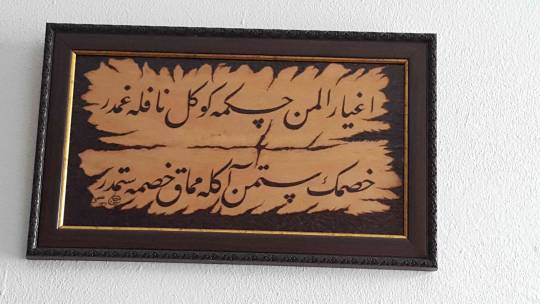 اغيار المن چكمه كوكل نافله غمدر
خصمك ستمن آكله مماق خصمه ستمدر